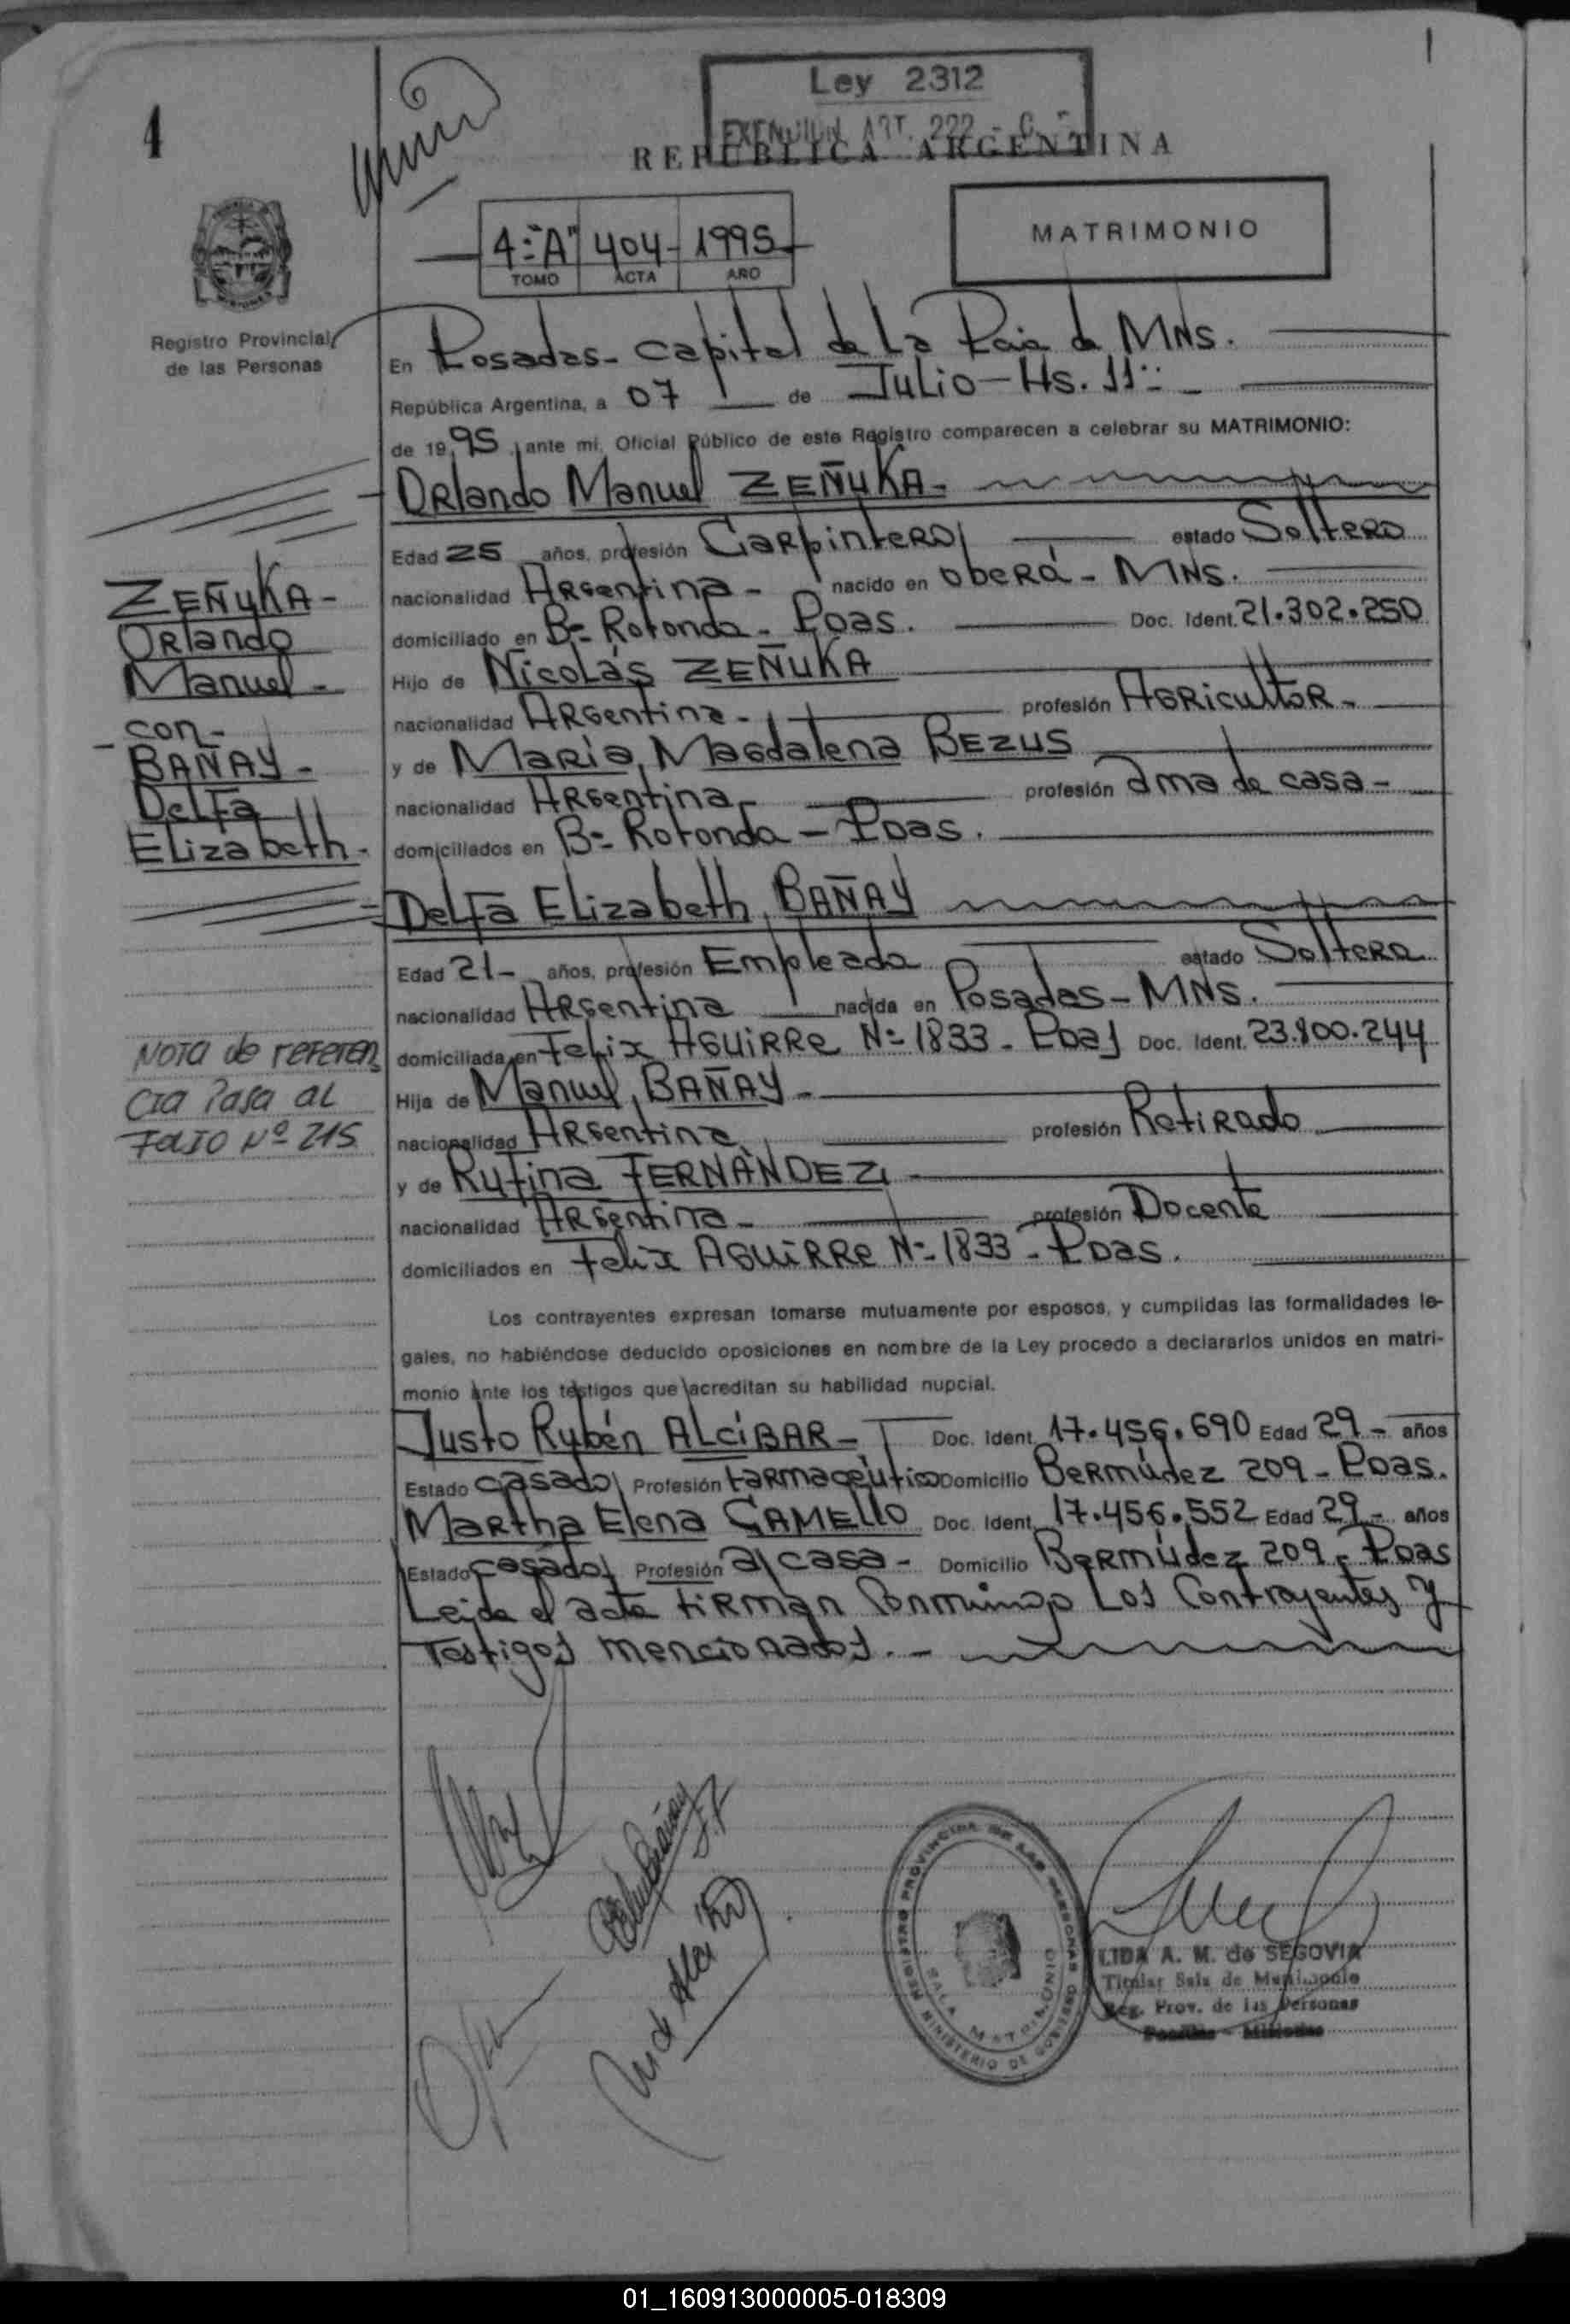 4
Ley 2312
EXENCION ART. 222 - C.
REPUBLICA ARGENTINA
MATRIMONIO
4-"A" 404- 1995
TOMO ACTA AÑO
Registro Provincial
de las Personas
En Posadas- capital de La Pcia de MNS.
República Argentina, a 07 de Julio-Hs. 11:
de 19 95 ante mi, Oficial Público de este Registro comparecen a celebrar su MATRIMONIO:
Orlando Manuel ZEÑUKA-
Edad 25 años, profesión Carpintero estado Soltero
nacionalidad Argentina- nacido en Oberá- MNS.
domiciliado en B- Rotonda- Pdas. Doc. Ident. 21.302.250
Hijo de Nicolás ZEÑUKA
nacionalidad Argentina- profesión Agricultor-
y de María Magdalena BEZUS
nacionalidad Argentina profesión ama de casa-
domiciliados en B- Rotonda - Pdas.
ZEÑUKA-
Orlando
Manuel-
-con-
BAÑAY-
Delfa
Elizabeth-
Delfa Elizabeth BAÑAY
Edad 21- años, profesión Empleada estado Soltera
nacionalidad Argentina nacida en Posadas- MNS.
domiciliada en Felix Aguirre N- 1833- Pdas Doc. Ident. 23.800.244
Hija de Manuel BAÑAY-
nacionalidad Argentina profesión Retirado
y de Rufina FERNÁNDEZ
nacionalidad Argentina- profesión Docente
domiciliados en Felix Aguirre N- 1833- Pdas.
Nota de referen
cia Pasa al
Folio Nº 215
Los contrayentes expresan tomarse mutuamente por esposos, y cumplidas las formalidades le-
gales, no habiéndose deducido oposiciones en nombre de la Ley procedo a declararlos unidos en matri-
monio ante los testigos que acreditan su habilidad nupcial.
Justo Rubén ALCIBAR- Doc. Ident. 17.456.690 Edad 29- años
Estado casado Profesión farmacéutico Domicilio Bermúdez 209- Pdas.
Martha Elena GAMELLO Doc. Ident. 17.456.552 Edad 29- años
Estado casado Profesión a/casa- Domicilio Bermúdez 209- Pdas
Leida el acta firman conmigo Los Contrayentes y
Testigos mencionados.-
REGISTRO PROVINCIAL DE LAS PERSONAS
MINISTERIO DE GOBIERNO
SALA MATRIMONIO
LIDA A. M. de SEGOVIA
Titular Sala de Matrimonio
Reg. Prov. de las Personas
Posadas - Misiones
01_160913000005-018309